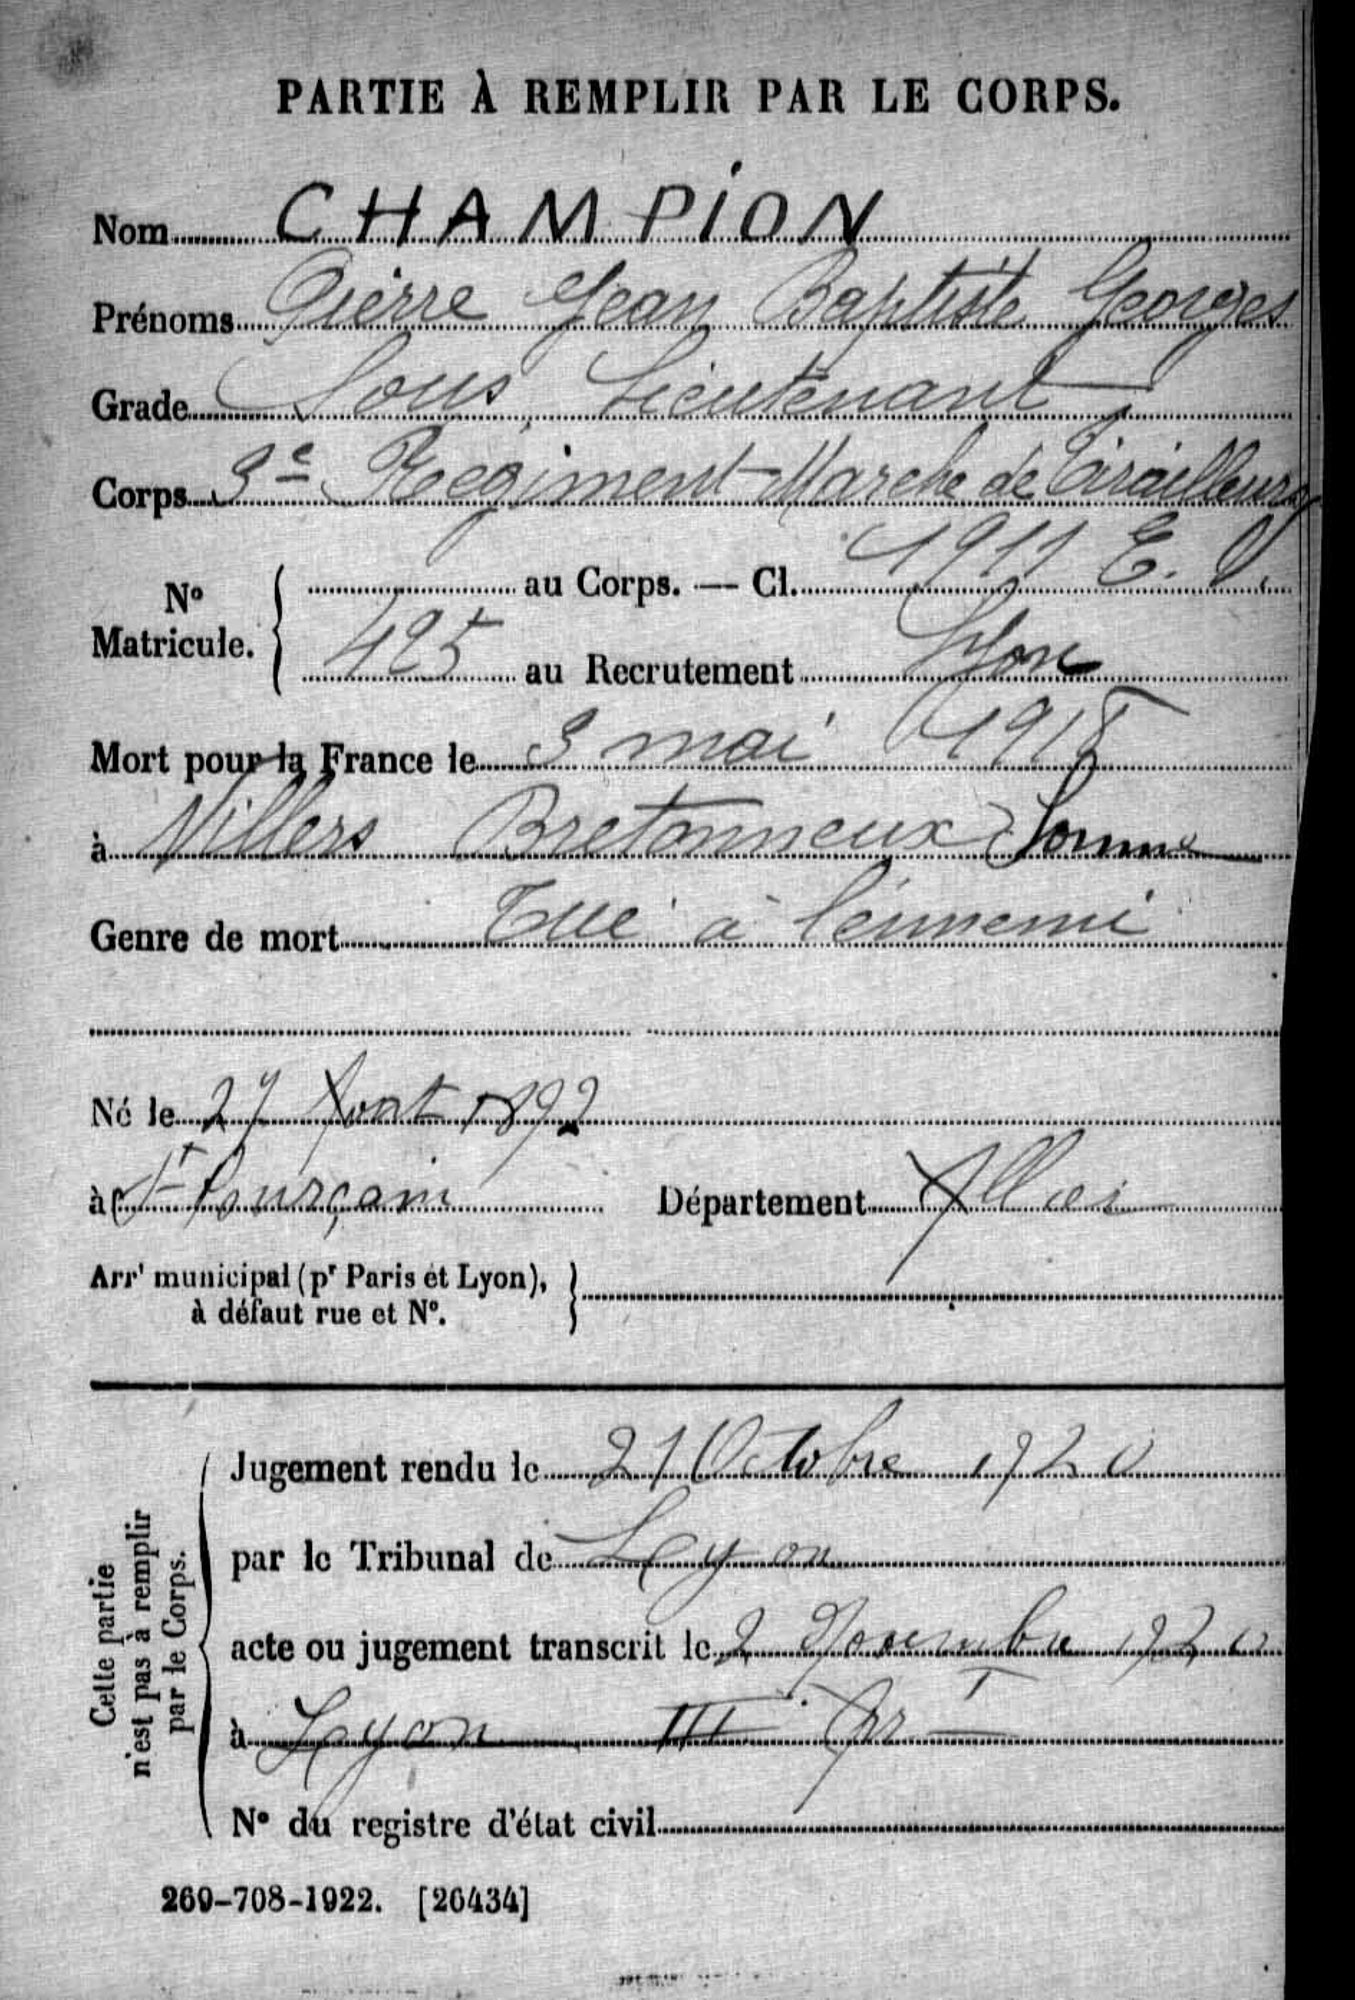 PARTIE À REMPLIR PAR LE CORPS.
Nom CHAMPION
Prénoms Pierre Jean Baptiste Georges
Grade Sous Lieutenant
Corps 3e Regiment Marche de Tirailleurs
N° Matricule. { au Corps. — Cl. 1911 E. V.
425 au Recrutement Lyon
Mort pour la France le 3 mai 1918
à Villers Bretonneux Somme
Genre de mort Tué à l'ennemi
Né le 27 Aout 1892
à St Pourçain Département Allier
Arrt municipal (pr Paris et Lyon),
à défaut rue et N°.
Cette partie
n'est pas à remplir
par le Corps.
Jugement rendu le 21 Octobre 1920
par le Tribunal de Lyon
acte ou jugement transcrit le 2 Novembre 1920
à Lyon III Arrt
N° du registre d'état civil
269-708-1922. [26434]